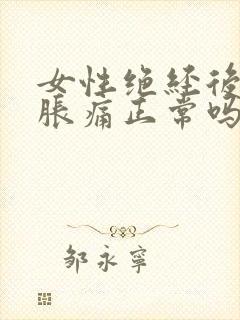 女性绝经後
胀痛正常吗
邹永宁